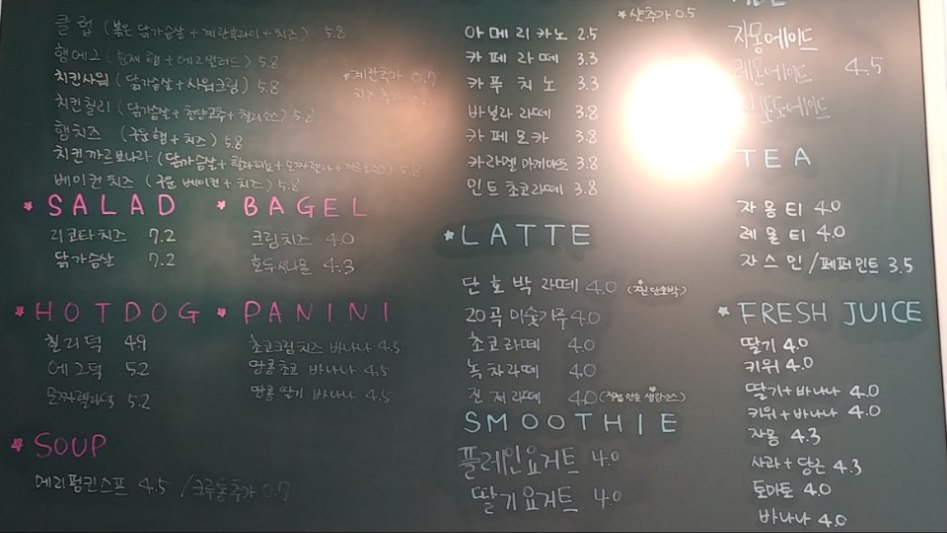 클럽 (볶은 닭가슴살 + 계란후라이 + 치즈) 5.8
햄에그 (훈제 햄 + 에그샐러드) 5.8
치킨사워 (닭가슴살 + 사워크림) 5.8
*계란추가 0.7
치즈추가
치킨칠리 (닭가슴살 + 청양고추 + 칠리소스) 5.2
햄치즈 (구운 햄 + 치즈) 5.8
치킨까르보나라 (닭가슴살 + 할라피뇨 + 모짜렐라 + 5.8
베이컨치즈 (구운 베이컨 + 치즈) 5.8
* SALAD
리코타치즈 7.2
닭가슴살 7.2
* BAGEL
크림치즈 4.0
호두시나몬 4.3
* HOTDOG
칠리덕 4.9
에그덕 5.2
모짜렐라덕 5.2
* PANINI
초코크림치즈 바나나 4.5
땅콩초코 바나나 4.5
땅콩 딸기 바나나 4.5
* SOUP
메리펌킨스프 4.5 / 크루통추가 0.7
*샷추가 0.5
아메리카노 2.5
카페라떼 3.3
카푸치노 3.3
바닐라 라떼 3.8
카페모카 3.8
카라멜 마끼아또 3.8
민트초코라떼 3.8
* LATTE
단호박라떼 4.0 (찐단호박)
20곡 미숫가루 4.0
초코라떼 4.0
녹차라떼 4.0
진저라떼 4.0 (직접 만든 생강소스)
SMOOTHIE
플레인요거트 4.0
딸기요거트 4.0
자몽에이드
레몬에이드 4.5
청포도에이드
TEA
자몽티 4.0
레몬티 4.0
쟈스민/페퍼민트 3.5
* FRESH JUICE
딸기 4.0
키위 4.0
딸기+바나나 4.0
키위+바나나 4.0
자몽 4.3
사과+당근 4.3
토마토 4.0
바나나 4.0